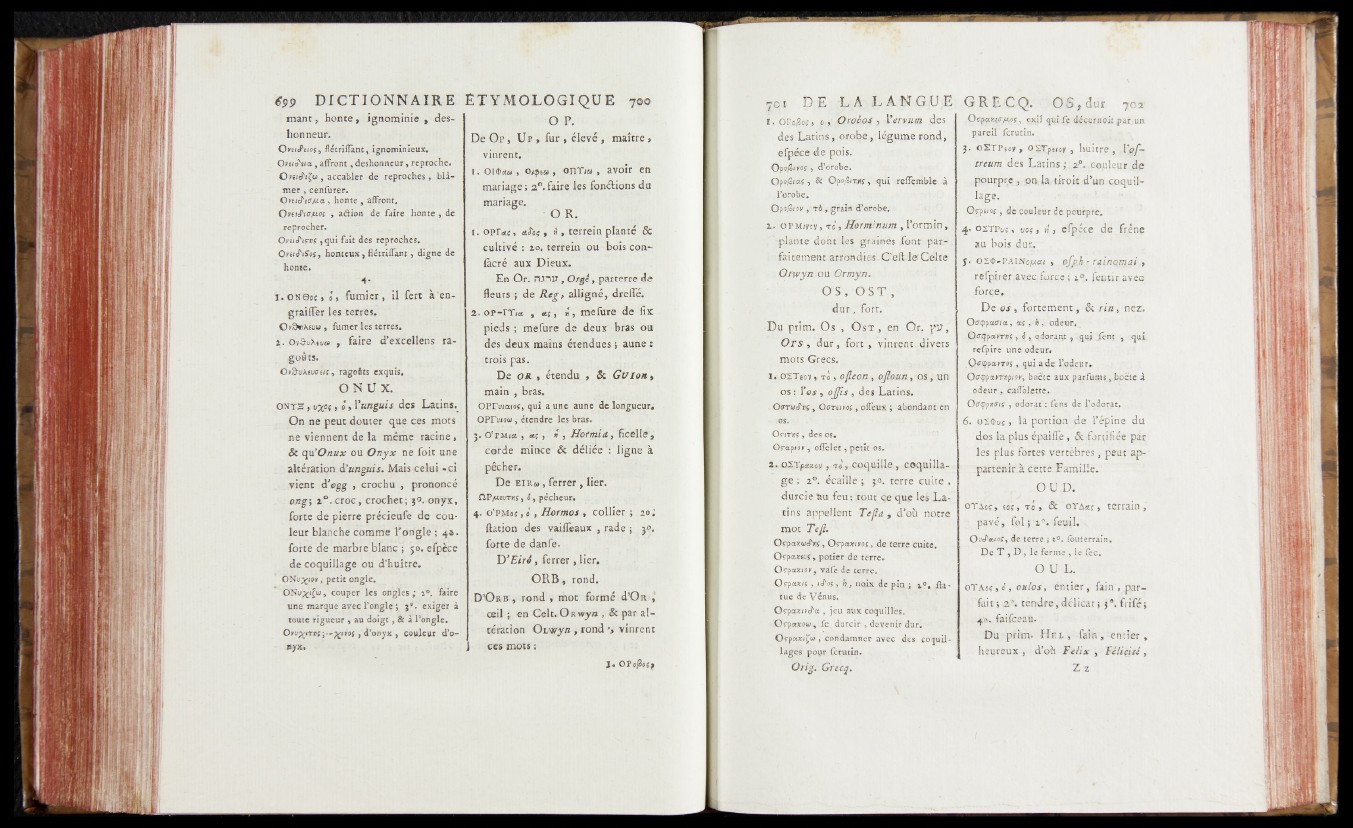 699 DICTIONNAIRE ÉTYMOLOGIQUE 700
mant, honte, ignominie, des-
honneur.
Ονειδειος, flétrissant, ignominieux.
Ονειδεια, affront, deshonneur, reproche.
Ονειδιζω, accabler de reproches, blâ-
mer, censurer.
Ονειδισμα, honte, affront.
Ονειδισμος, action de faire honte, de
reprocher.
qui fait des reproches.
honteux, flétrissant, digne de
honte.
4.
1. ΟΝΘος, ὁ, fumier, il sert à en-
graisser les terres.
Ονθυλευω, fumer les terres.
2. Ονθυλευω, faire d'excellens ra-
goûts.
Ονθυλευσεις, ragoûts exquis.
ONUX.
ΟΝΥΞ, υχος, ὁ, l'unguis des Latins.
On ne peut douter que ces mots
ne viennent de la même racine,
& qu'Onux ou Onyx ne soit une
altération d'unguis. Mais celui-ci
vient d'ogg, crochu, prononcé
ong; 2°. croc, crochet; 3°. onyx,
sorte de pierre précieuse de cou-
leur blanche comme l'ongle; 4°.
sorte de marbre blanc; 5°. espèce
de coquillage ou d'huître.
ΟΝυχιον, petit ongle.
ΟΝυχιζω, couper les ongles; 2°. faire
une marque avec l'ongle; 3°. exiger à
toute rigueur, au doigt, & à l'ongle.
Ονυχιτης;--χινος, d'onyx, couleur d'o-
nyx.
OP.
De Op, Up, sur, élevé, maître,
vinrent.
1. ΟΙΦαω, Οιφεω, ΟΠΥιω, avoir en
mariage; 2°. faire les fonctions du
mariage.
OR.
1. ΟΡΓας, αδος, ἡ, terrein planté &
cultivé: 2o. terrein ou bois con-
sacré aux Dieux.
En Or. ערוגה, Orgé, parterre de
fleurs; de Reg, alligné, dressé.
2. ΟΡ-ΓΥια, ας, ἡ, mesure de six
pieds; mesure de deux bras ou
des deux mains étendues; aune:
trois pas.
De OR, étendu, & GUION,
main, bras.
ΟΡΓυιαιος, qui a une aune de longueur.
ΟΡΓυιοω, étendre les bras.
3. Ο'ΡΜια, ας, ἡ, Hormia, ficelle,
corde mince & déliée: ligne à
pêcher.
De EIRω, serrer, lier.
ΩΡΜευτης, ὁ, pêcheur.
4. Ο'ΡΜος, ὁ, Hormos, collier; 2o.
station des vaisseaux, rade; 3°.
sorte de danse.
D'Eiró, serrer, lier.
ORB, rond.
D'ORB, rond, mot formé d'OR,
œil; en Celt. ORwyn, & par al-
tération OLwyn, rond, vinrent
ces mots:
1. ΟΡοβος,
701 DE LA LANGUE GRECQ. OS, dur 702
1. ΟΡοβος, ὁ, Orobos, l'ervum des
des Latins, orobe, légume rond,
espéce de pois.
Οροβινος, d'orobe.
Οροβιας, & Οροβιτης, qui ressemble à
l'orobe.
Οροβιον, τὸ, grain d'orobe.
2. ΟΡΜινον, τὸ, Horminum, l'ormin,
plante dont les graines sont par-
faitement arrondies. C'est le Celte
Orwyn ou Ormyn.
OS, OST,
dur, fort.
Du prim. Os, OST, en Or. עץ,
Ors, dur, fort, vinrent divers
mots Grecs.
1. ΟΣΤεον, τὸ, osteon, ostoun, os, un
os: l'os, ossis, des Latins.
Οστωδης, Οστεινος, osseux; abondant en
os.
Οστιτης, des os.
Οσταριον, osselet, petit os.
2. ΟΣΤρακον, τὸ, coquille, coquilla-
ge: 2°. écaille; 3°. terre cuite,
durcie au feu: tout ce que les La-
tins appellent Testa, d'où notre
mot Test.
Οστρακωδης, Οστρακινος, de terre cuite.
Οστρακευς, potier de terre.
Οστρακιον, vase de terre.
Οστρακις, ιδος, ἡ, noix de pin; 2°. sta-
tue de Vénus.
Οστρακινδα, jeu aux coquilles.
Οστρακοω, se durcir, devenir dur.
Οστρακιζω, condamner avec des coquil-
lages pour scrutin.
Orig. Grecq.
Οστρακισμος, exil qui se décernoit par un
pareil scrutin.
3. ΟΣΤΡεον, ΟΣΤρειον, huître, l'os-
treum des Latins; 2°. couleur de
pourpre, on la tiroit d'un coquil-
lage.
Οστρειος, de couleur de pourpre.
4. ΟΣΤΡυς, υος, ἡ, espéce de frêne
au bois dur.
5. ΟΣΦ-ΡΑΙΝομαι, osph-rainomai,
respirer avec force; 2°. sentir avec
force.
De os, fortement, & rin, nez.
Οσφρασια, ας, ἡ, odeur.
Οσφραντης, ὁ, odorant, qui sent, qui
respire une odeur.
Οσφραντος, qui a de l'odeur.
Οσφραντηριον, boëte aux parfums, boëte à
odeur, cassolette.
Οσφρασις, odorat: sens de l'odorat.
6. ΟΣΦυς, la portion de l'épine du
dos la plus épaisse, & fortifiée par
les plus fortes vertèbres, peut ap-
partenir à cette Famille.
OUD.
ΟΥΔος, εος, τὸ, & ΟΥΔας, terrain,
pavé, sol; 2°. seuil.
Ουδαιος, de terre; 2°. souterrain.
De T, D, le ferme, le sec.
OUL.
ΟΥΛος, ὁ, oulos, entier, sain, par-
fait; 2°. tendre, délicat; 3°. frisé;
4o. faisceau.
Du prim. HEL, sain, entier,
heureux, d'où Felix, Félicité,
Zz